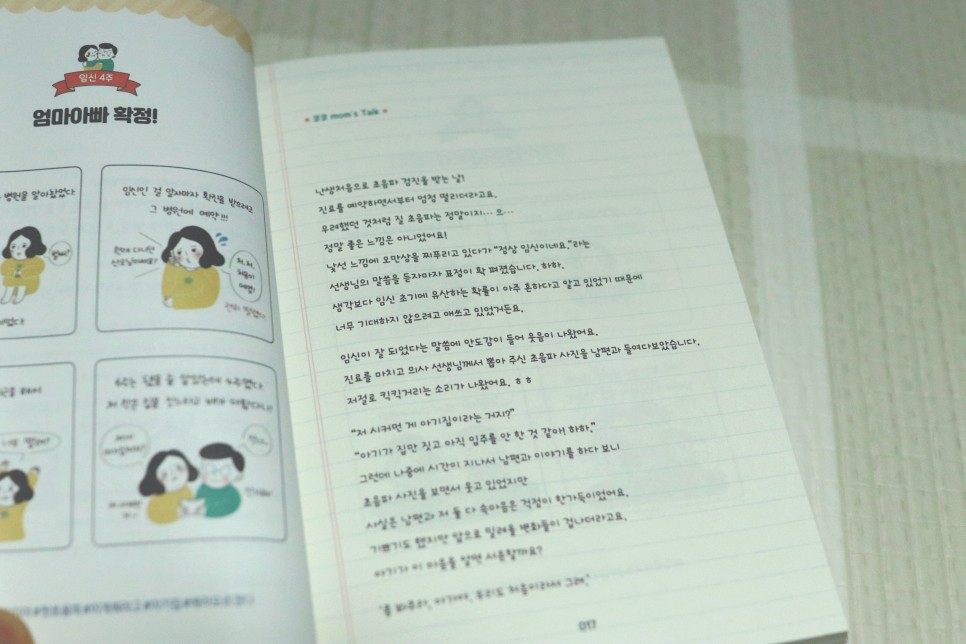 임신 4주
엄마아빠 확정!
병원을 알아봤었다
임신인 걸 알자마자 확진을 받으려고
그 병원에 예약!!!
코코 mom's Talk
난생처음으로 초음파 검진을 받는 날!
진료를 예약하면서부터 엄청 떨리더라고요.
우려했던 것처럼 질 초음파는 정말이지… 으…
정말 좋은 느낌은 아니었어요!
낯선 느낌에 오만상을 찌푸리고 있다가 "정상 임신이네요."라는
선생님의 말씀을 듣자마자 표정이 확 펴졌습니다. 하하.
생각보다 임신 초기에 유산하는 확률이 아주 흔하다고 알고 있었기 때문에
너무 기대하지 않으려고 애쓰고 있었거든요.
임신이 잘 되었다는 말씀에 안도감이 들어 웃음이 나왔어요.
진료를 마치고 의사 선생님께서 뽑아 주신 초음파 사진을 남편과 들여다보았습니다.
저절로 킥킥거리는 소리가 나왔어요. ㅎㅎ
"저 시커먼 게 아기집이라는 거지?"
"아기가 집만 짓고 아직 입주를 안 한 것 같아! 하하."
그런데 나중에 시간이 지나서 남편과 이야기를 하다 보니
초음파 사진을 보면서 웃고 있었지만
사실은 남편과 저 둘 다 속마음은 걱정이 한가득이었어요.
기쁘기도 했지만 앞으로 밀려올 변화들이 겁나더라고요.
아기가 이 마음을 알면 서운할까요?
'좀 봐주라, 아가야. 우리도 처음이라서 그래.'
017